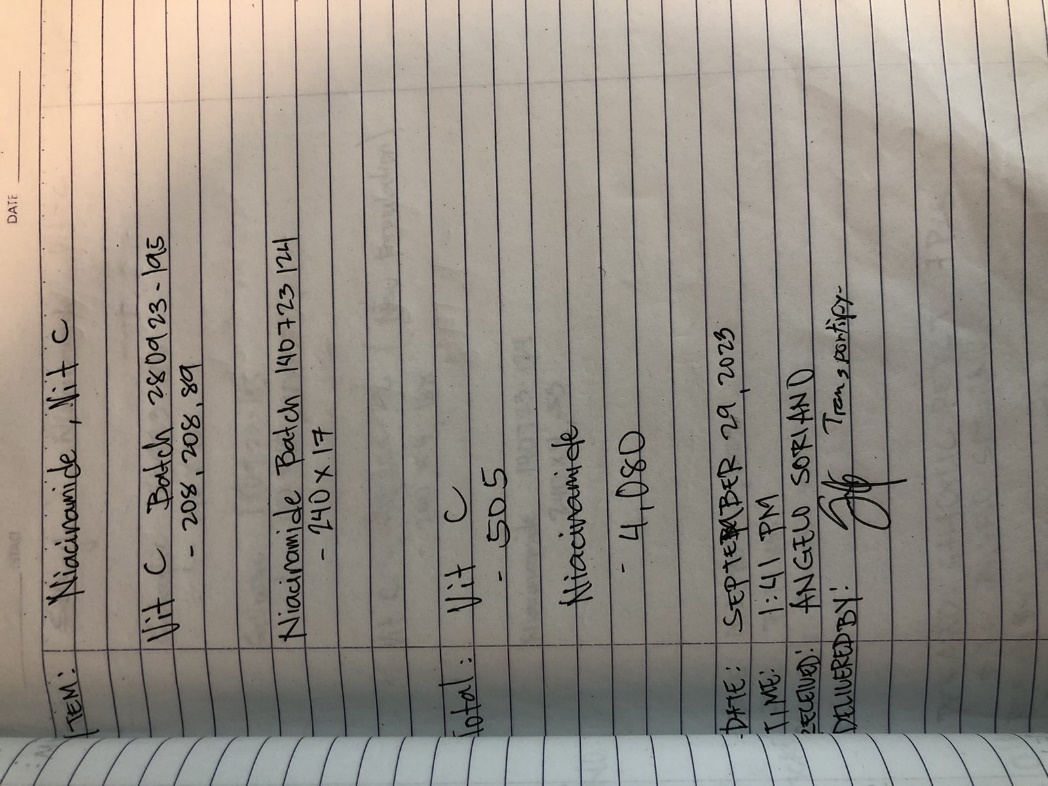 DATE
ITEM: Niacinamide, Vit C
Vit C Batch 280923-195
- 208, 208, 89
Niacinamide Batch 140723124
- 240 x 17
Total: Vit C
- 505
Niacinamide
- 4,080
DATE: SEPTEMBER 29, 2023
TIME: 1:41 PM
RECEIVED: ANGELO SORIANO
DELIVERED BY: Transportify-